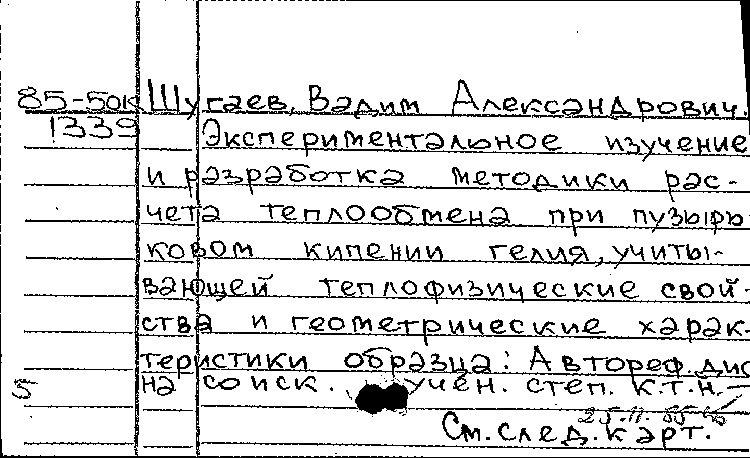 85-50к Шугаев, Вадим Александрович.
1339 Экспериментальное изучение
и разработка методики рас-
чета теплообмена при пузырь
ковом кипении гелия, учиты-
вающей теплофизические свой-
ства и геометрические харак-
теристики образца: Автореф. дис
5 на соиск. учен. степ. к.т.н. –
См. след. карт.